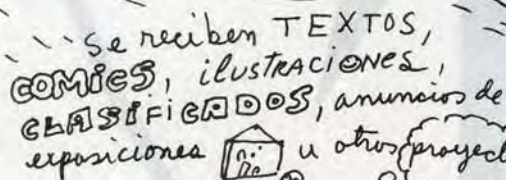 Se reciben TEXTOS,
COMICS, ilUSTRACIONES,
CLASIFICADOS, anuncios de
exposiciones u otros proyect